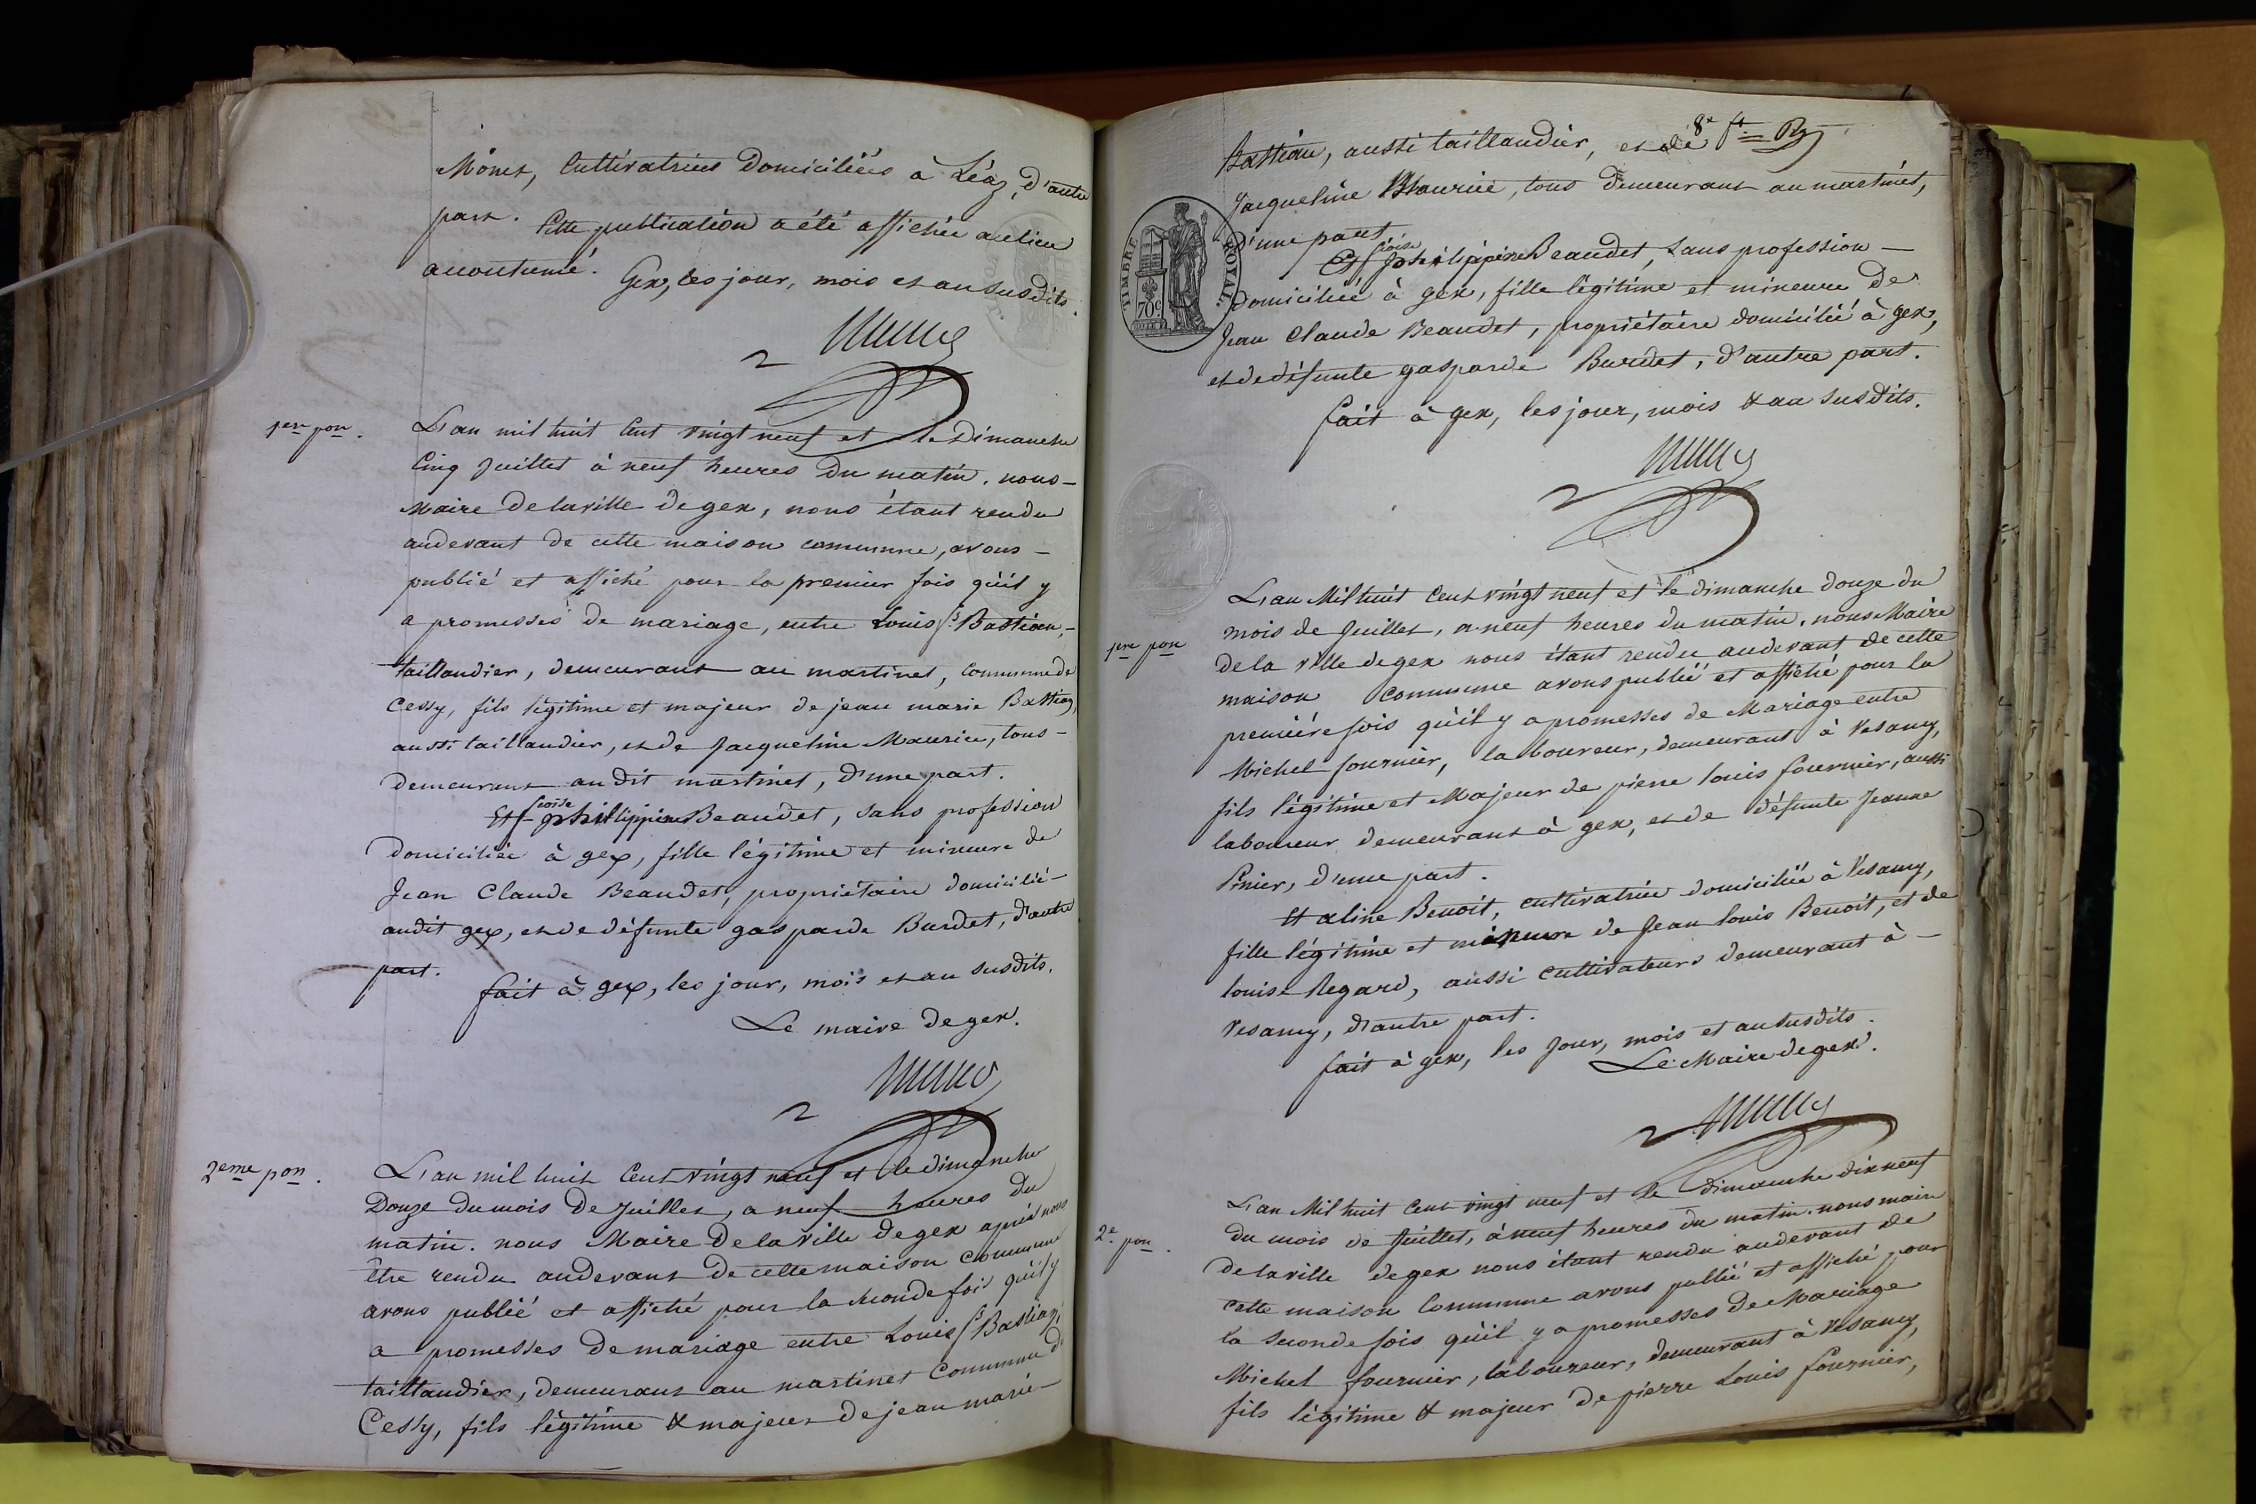 Mônet, Cultivatrices domiciliées à Léaz, d'autre
part. Cette publication a été affichée au lieu
accoutumé. Gex, les jour, mois et an susdits.
1ere pon.
L'an mil huit Cent vingt neuf et le dimanche
Cinq Juillet à neuf heures du matin. nous
Maire de la ville de gex, nous étant rendu
au devant de cette maison commune, avons
publié et affiché pour la premier fois qu'il y
a promesses de mariage, entre Louis fs Bastian,
taillandier, demeurant au martinet, Commune de
Cessy, fils légitime et majeur de jean marie Bastian,
aussi taillandier, et de Jacqueline Maurice, tous
demeurant au dit martinet, d'une part.
Et fcoise philippine Beaudet, sans profession
domiciliée à gex, fille légitime et mineure de
Jean Claude Beaudet, propriétaire domicilié
audit gex, et de défunte gasparde Burdet, d'autre
part.
fait à gex, les jour, mois et an susdits.
Le maire de gex.
2eme pon.
L'an mil huit Cent vingt neuf et le dimanche
Douze du mois de Juillet, a neuf heures du
matin. nous Maire de la ville de gex après nous
être rendu au devant de cette maison Commune
avons publié et affiché pour la seconde fois qu'il y
a promesses de mariage entre Louis fs Bastian,
taillandier, demeurant au martinet Commune de
Cessy, fils légitime & majeur de jean marie
8e ft
Bastian, aussi taillandier, et de
Jacqueline Maurice, tous demeurant au martinet,
d'une part.
Et fcoise philippine Beaudet, sans profession
domiciliée à gex, fille légitime et mineure de
Jean Claude Beaudet, propriétaire domicilié à gex,
et de défunte gasparde Burdet, d'autre part.
fait à gex, les jour, mois & an susdits.
TIMBRE ROYAL
70c
1re pon
L'an Mil huit Cent vingt neuf et le dimanche douze du
mois de Juillet, a neuf heures du matin, nous Maire
de la ville de gex nous étant rendu au devant de cette
maison Commune avons publié et affiché pour la
première fois qu'il y a promesses de Mariage entre
Michel fournier, laboureur, demeurant à Vesancy,
fils légitime et Majeur de pierre louis fournier, aussi
laboureur demeurant à gex, et de défunte Jeanne
Pinier, d'une part.
Et aline Benoit, cultivatrice domiciliée à Vesancy,
fille légitime et mineure de Jean louis Benoit, et de
louise Regard, aussi cultivateurs demeurant à
Vesancy, d'autre part.
fait à gex, les Jour, mois et an susdits.
Le Maire de gex.
2e pon.
L'an Mil huit Cent vingt neuf et le dimanche dix neuf
du mois de Juillet, à neuf heures du matin. nous maire
de la ville de gex nous étant rendu au devant de
cette maison Commune avons publié et affiché pour
la seconde fois qu'il y a promesses de Mariage
Michel fournier, laboureur, demeurant à Vesancy,
fils légitime & majeur de pierre Louis fournier,